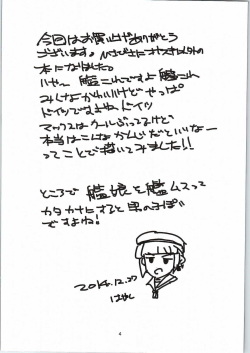 今回はお買い上げありがとう
ございます。ひさびさにオフセ以外の
本になりました。
いやー 艦これですよ艦これ
みんなかわいいけどやっぱ
ドイツですよね、ドイツ
マックスはクールぶってるけど
本当はこんなかんじだといいなー
ってことで描いてみました!!
ところで艦娘を艦ムスって
カタカナにすると男のっぽい
ですよね!
2014.12.27
はやし
4